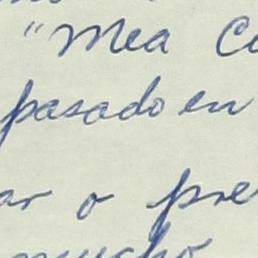 "Mea Cu
pasado en
ar o pre
mucho